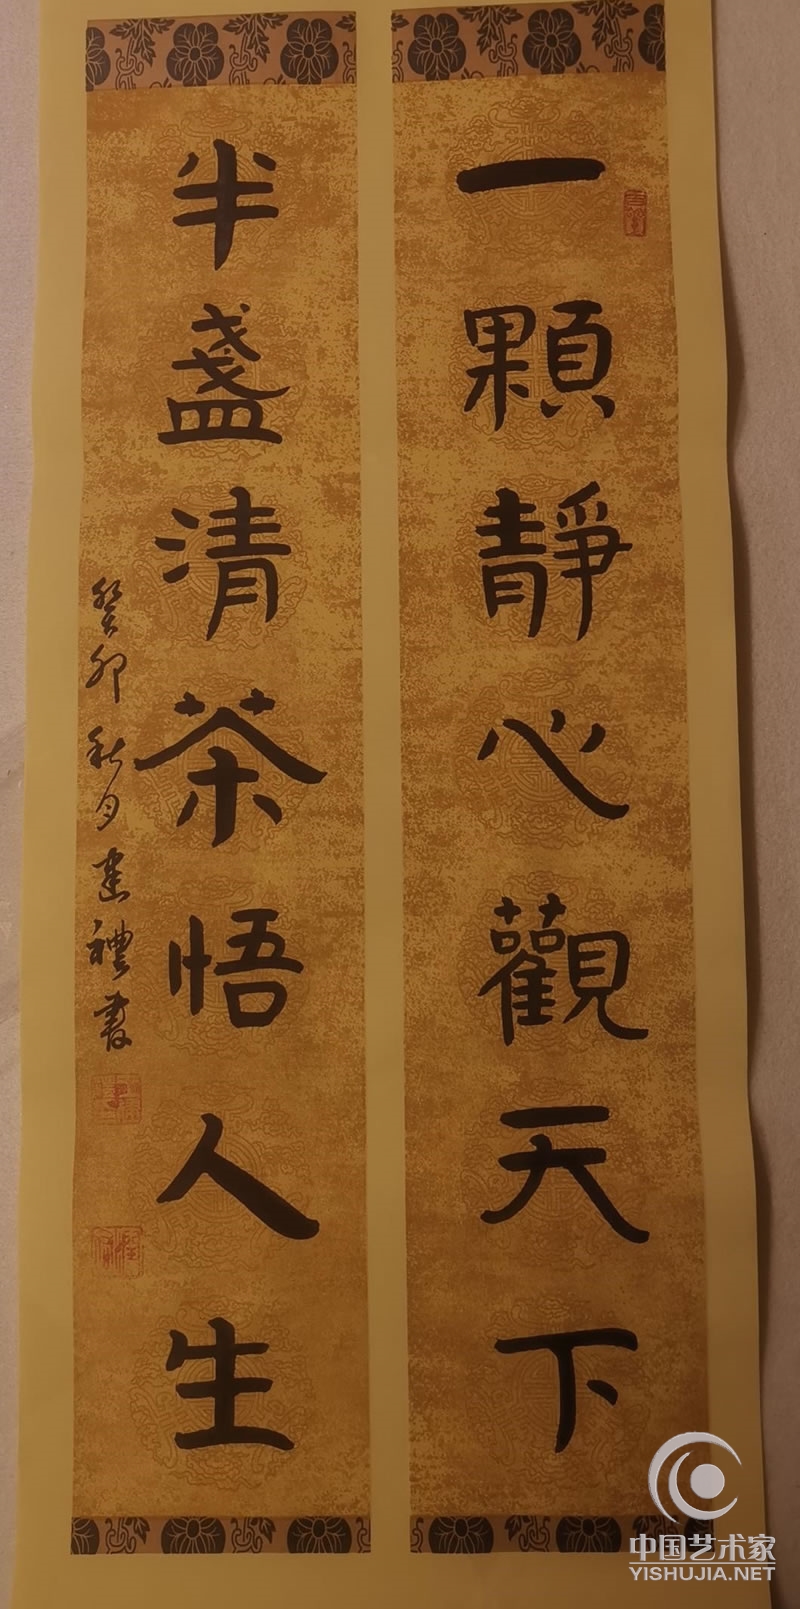 一顆靜心觀天下
半盞清茶悟人生
癸卯秋月建禮書
中国艺术家
YISHUJIA.NET